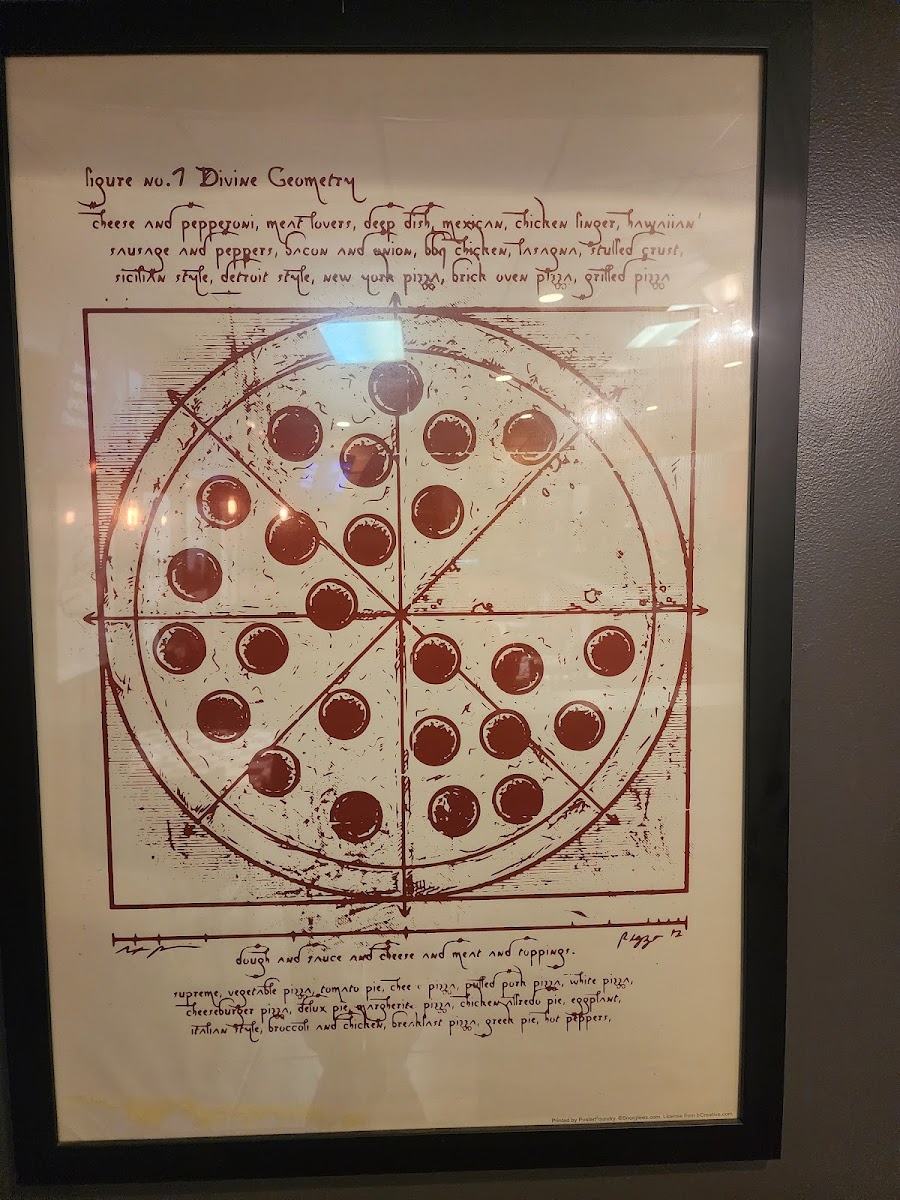 figure no.1 Divine Geometry
cheese and pepperoni, meat lovers, deep dish, mexican, chicken finger, hawaiian
sausage and peppers, bacon and onion, bbq chicken, lasagna, stuffed crust,
sicilian style, detroit style, new york pizza, brick oven pizza, grilled pizza
dough and sauce and cheese and meat and toppings.
supreme, vegetable pizza, tomato pie, pizza, pulled pork pizza, white pizza,
cheeseburger pizza, delux pie, margherita pizza, chicken alfredo pie, eggplant,
italian style, broccoli and chicken, breakfast pizza, greek pie, hot peppers,
Printed by PosterFoundry. ©Snorgtees.com. License from bCreative.com